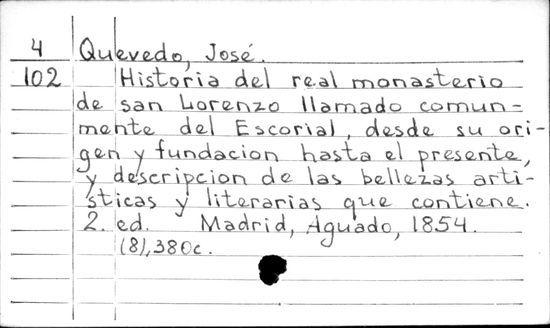 4 Quevedo, José.
102 Historia del real monasterio
de san Lorenzo llamado comun=
mente del Escorial, desde su ori-
gen y fundacion hasta el presente,
y descripcion de las bellezas arti-
sticas y literarias que contiene.
2. ed. Madrid, Aguado, 1854.
(8), 380c.